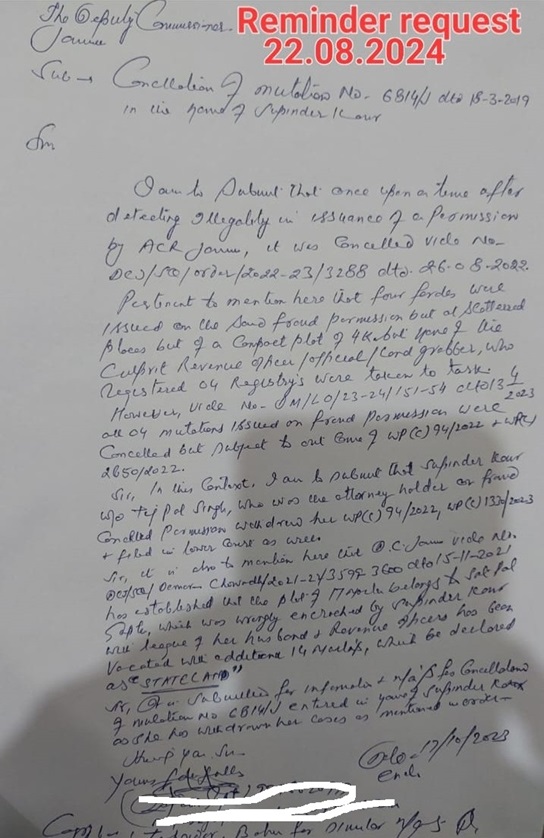 The Deputy Commissioner
Reminder request
22.08.2024
Jammu
Sub→ Cancellation of mutation No- 6814/J dtd 18-3-2019
in the name of Supinder Kour
Sir
I am to Submit that once upon a time after
detecting Illegality in issuance of a Permission
by ACR Jammu, it was Cancelled vide No-
DCJ/SQ/order/2022-23/3288 dtd- 26-08-2022.
Pertinent to mention here that four fardes were
issued on the Said fraud permission but at Scattered
places but of a Compact plot of 4K but none of the
Culprit Revenue officer/official/Land grabber, who
Registered 04 Registry's were taken to task.
However, vide No- /LO/23-24/151-54 dtd 13/4
2023
all 04 mutations issued on fraud Permission were
Cancelled but Subject to out Come of WP(C) 94/2022 &
2650/2022.
Sir, In this Context, I am to Submit that Supinder Kour
W/o Tej Pal Singh, who was the attorney holder on fraud
Cancelled Permission withdrew her WP(C) 94/2022, WP(C) /2023
& filed in lower Court as well
Sir, it is also to mention here that D.C. Jammu vide No-
/2021-2 /3592 3600 dtd 15-11-2021
has established that the plot of 17 Marla belongs to Sat Pal
, which was wrongly encroached by Supinder Kour
with league of her husband & Revenue officers has been
Vacated with additional 14 Marlas, which be declared
as "STATE LAND"
Sir, is Submitted for information & n/a/p for Cancellation
of mutation No 6814/J entered in name of Supinder Kour
as She has withdrawn her cases as mentioned
Thank you Sir-
Yours
Dtd- 17/10/2023
encl.
Copy to , Bahu for Similar